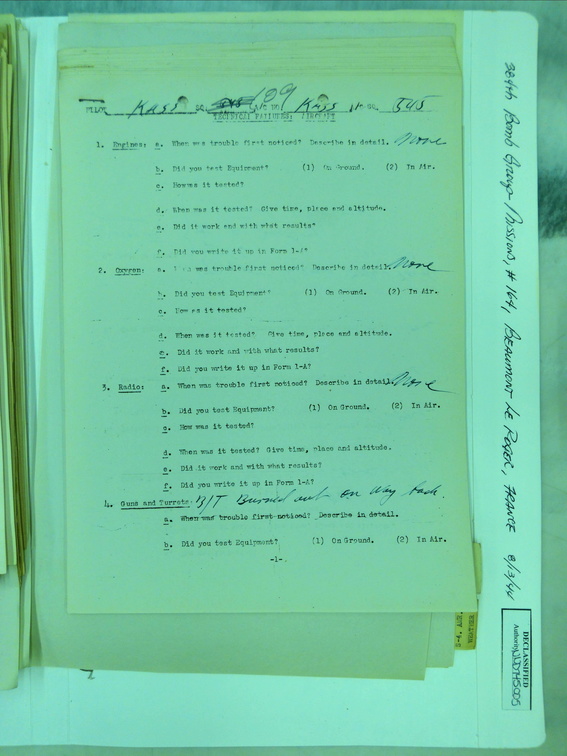 PILOT KASS SQ. 545 129 A/C NO. KASS NO. SQ. 545
TECHNICAL FAILURES: AIRCRAFT
1. Engines: a. When was trouble first noticed? Describe in detail. None
b. Did you test Equipment? (1) On Ground. (2) In Air.
c. How was it tested?
d. When was it tested? Give time, place and altitude.
e. Did it work and with what results?
f. Did you write it up in Form 1-A?
2. Oxygen: a. When was trouble first noticed? Describe in detail. None
b. Did you test Equipment? (1) On Ground. (2) In Air.
c. How was it tested?
d. When was it tested? Give time, place and altitude.
e. Did it work and with what results?
f. Did you write it up in Form 1-A?
3. Radio: a. When was trouble first noticed? Describe in detail. None
b. Did you test Equipment? (1) On Ground. (2) In Air.
c. How was it tested?
d. When was it tested? Give time, place and altitude.
e. Did it work and with what results?
f. Did you write it up in Form 1-A?
4. Guns and Turrets: B/T Burned out on way back
a. When was trouble first noticed? Describe in detail.
b. Did you test Equipment? (1) On Ground. (2) In Air.
-1-
384th Bomb Group Missions, #164, BEAUMONT LE ROGER, FRANCE 8/13/44
DECLASSIFIED
Authority NND745005